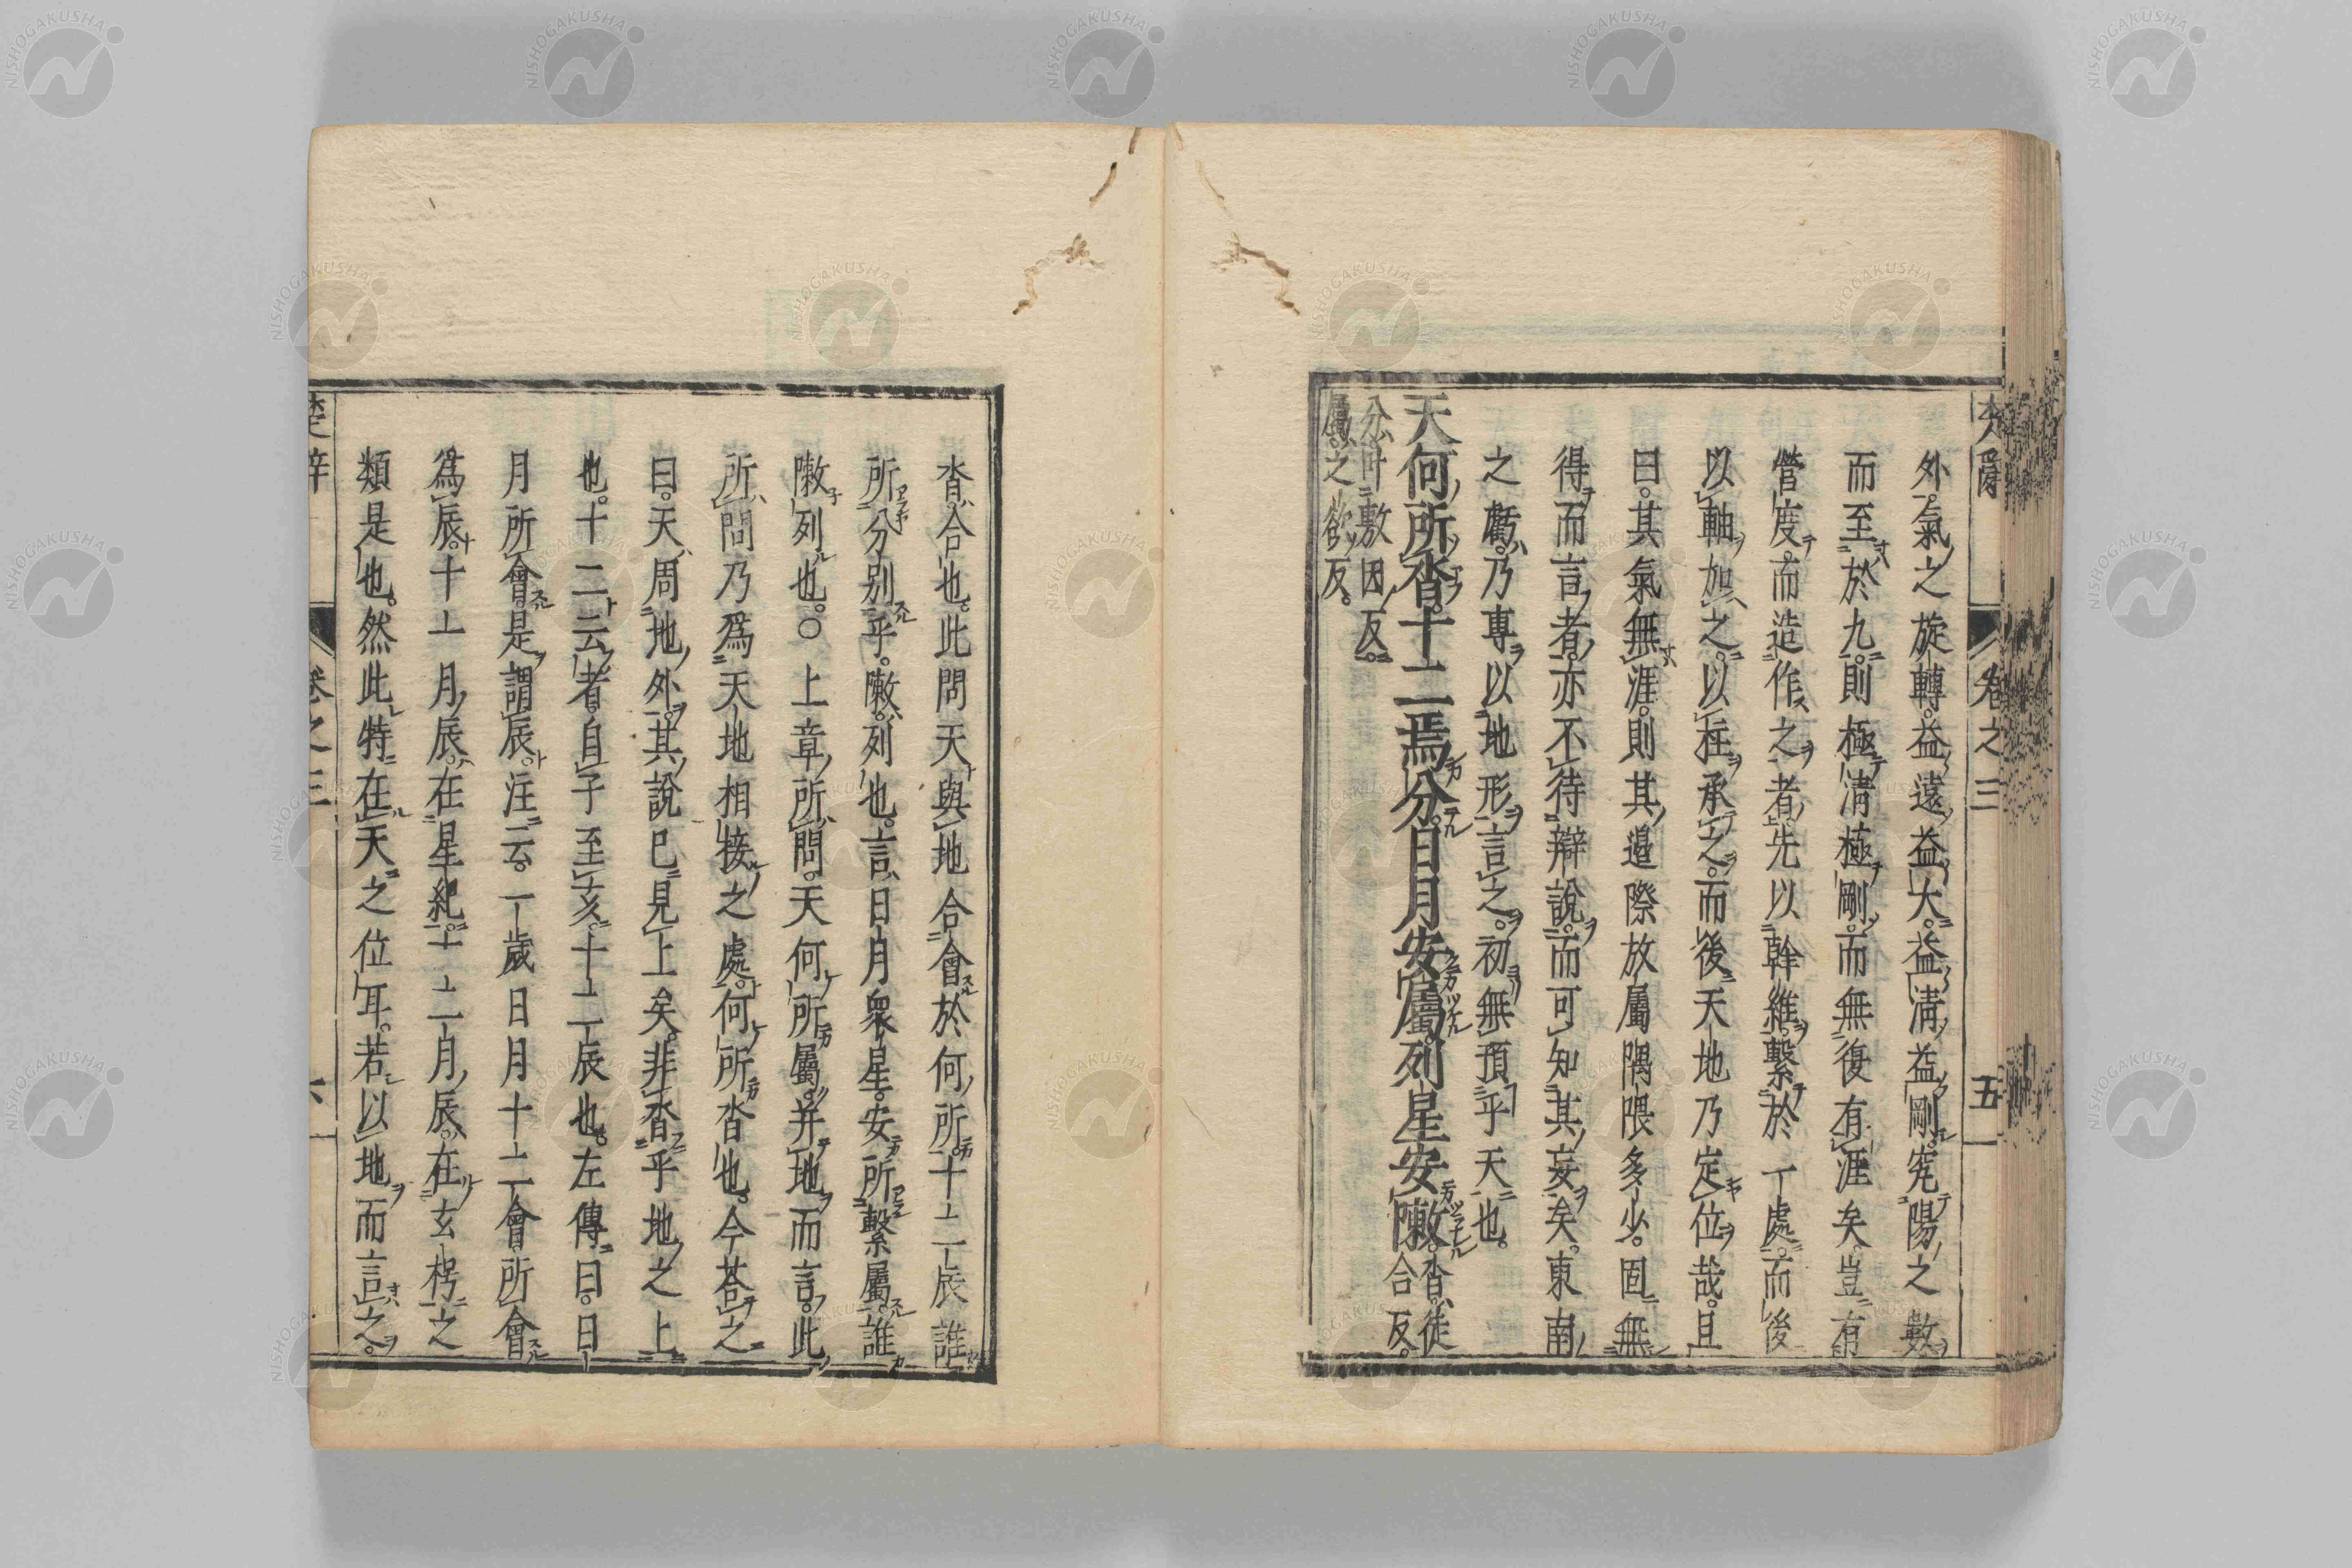 卷之三
五
外氣之旋轉益遠益大益清益剛究陽之數
而至於九則極清極剛而無復有涯矣豈有
營度而造作之者先以幹維繫於一處而後
以軸加之以柱承之而後天地乃定位哉且
曰其氣無涯則其邊際放屬隅隈多少固無
得而言者亦不待辯說而可知其妄矣東南
之虧乃專以地形言之初無預乎天也
天何所沓十二焉分日月安屬列星安敶沓徒
合反
分叶敷因反
屬之欲反
沓合也此問天與地合會於何所十二辰誰
所分別乎敶列也言日月衆星安所繫屬誰
敶列也○上章所問天何所屬并地而言此
所問乃爲天地相接之處何所沓也今荅之
曰天周地外其說已見上矣非沓乎地之上
也十二云者自子至亥十二辰也左傳曰日
月所會是謂辰注云一歲日月十二會所會
爲辰十一月辰在星紀十二月辰在玄枵之
類是也然此特在天之位耳若以地而言之
楚辞
卷之三
六
NISHOGAKUSHA